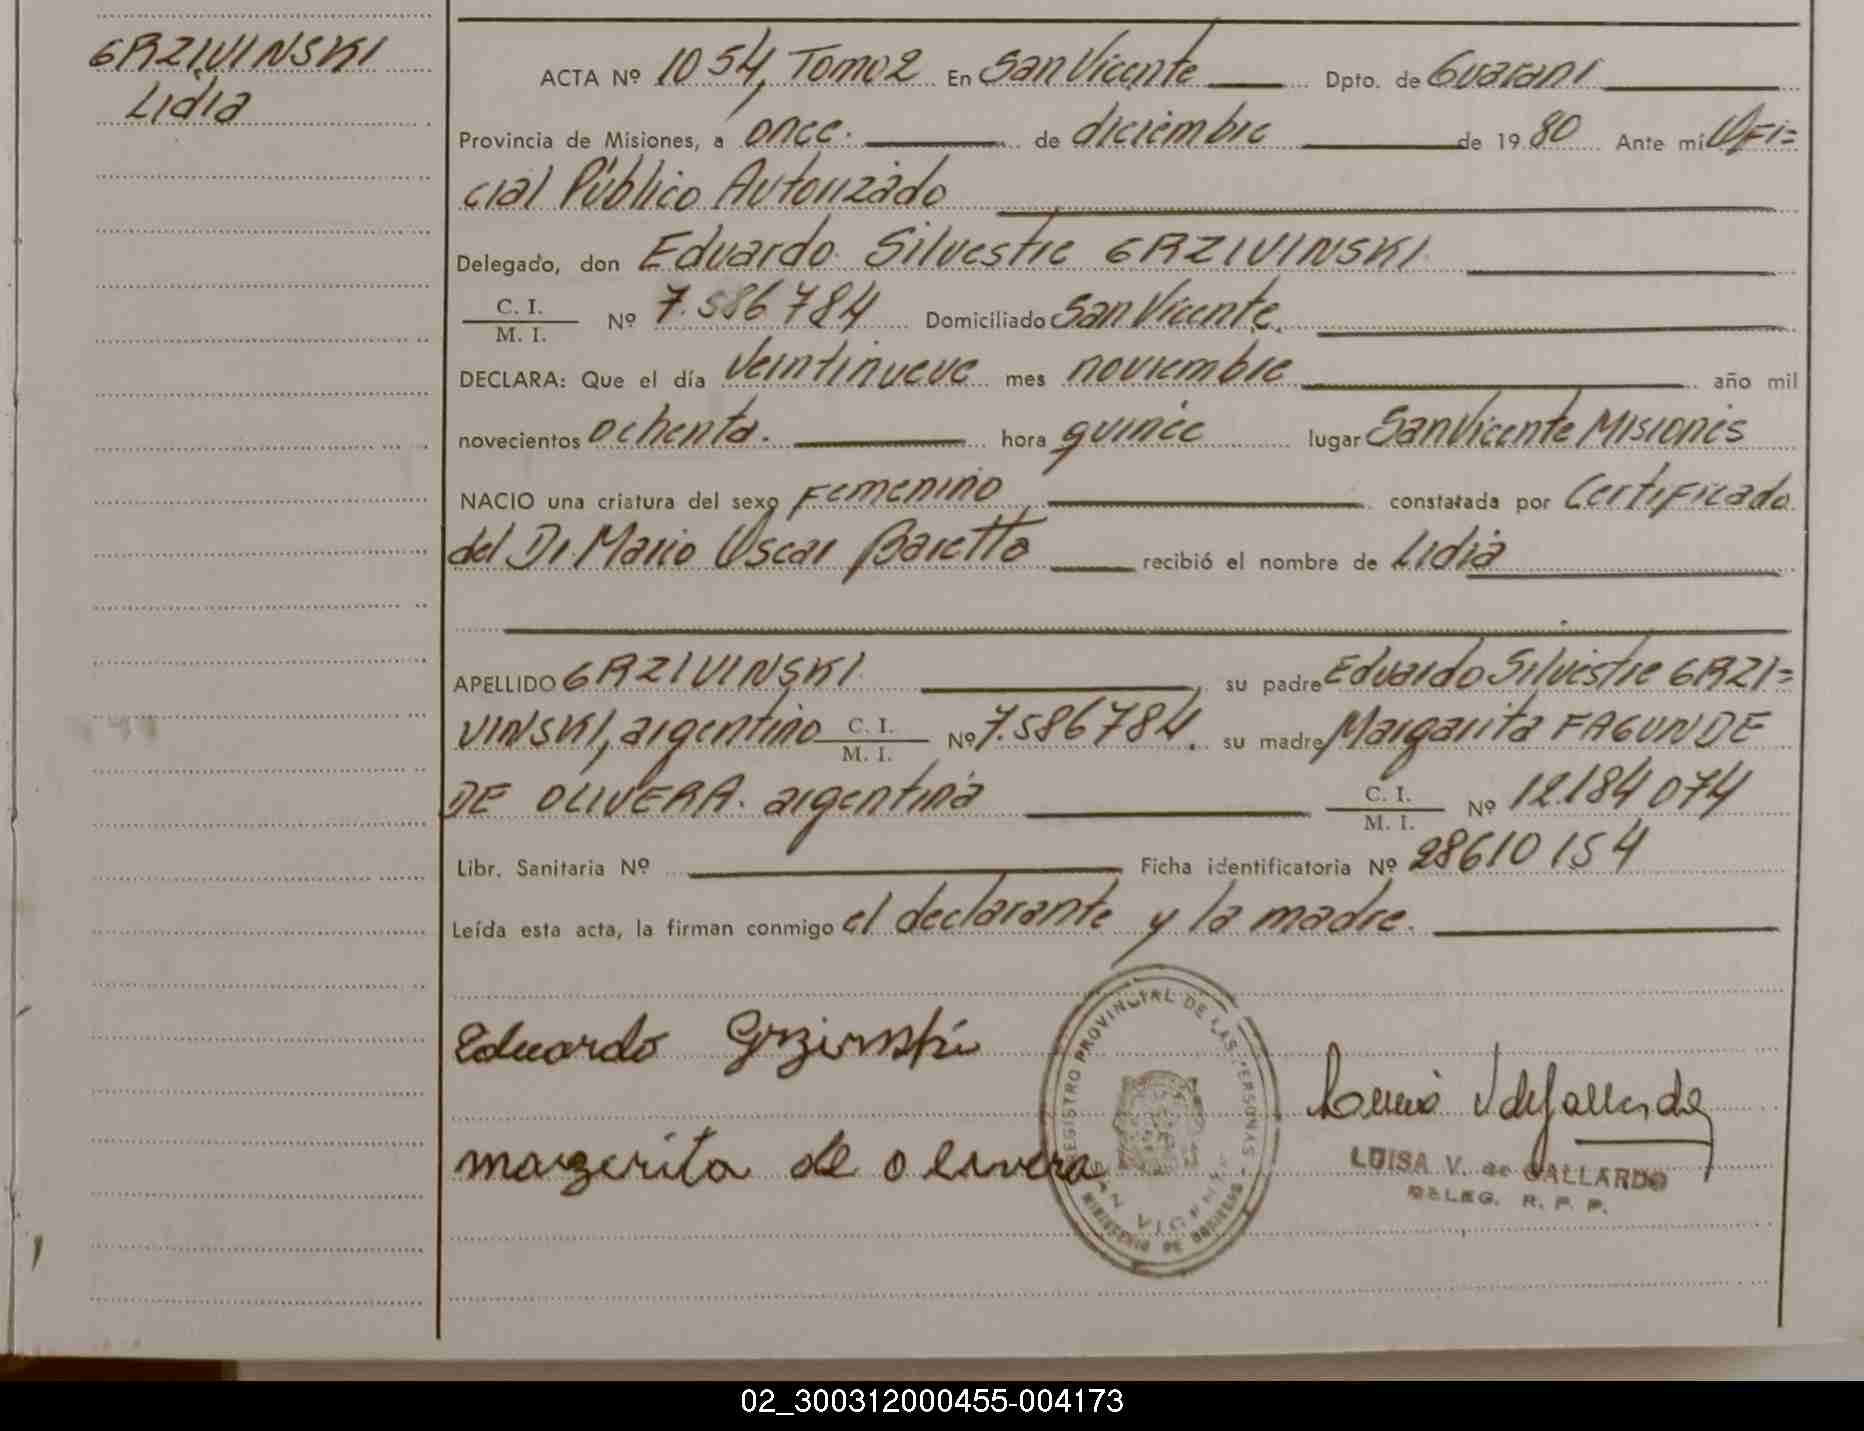 GRZIVINSKI
Lidia
ACTA Nº 1054, Tomo 2 En San Vicente Dpto. de Guarani
Provincia de Misiones, a once. de diciembre de 1980 Ante mi Ofi=
cial Público Autorizado
Delegado, don Eduardo Silvestre GRZIVINSKI
C. I.
M. I. Nº 7.586784 Domiciliado San Vicente.
DECLARA: Que el día veintinueve mes noviembre año mil
novecientos ochenta. hora quince lugar San Vicente Misiones
NACIO una criatura del sexo Femenino constatada por Certificado
del Dr Mario Oscar Baretto recibió el nombre de Lidia
APELLIDO GRZIVINSKI su padre Eduardo Silvestre GRZI=
VINSKI, argentino C. I. M. I. Nº 7.586784. su madre Margarita FAGUNDE
DE OLIVERA. argentina C. I. M. I. Nº 12184074
Libr. Sanitaria Nº Ficha identificatoria Nº 28610154
Leída esta acta, la firman conmigo el declarante y la madre.
Eduardo Grzivinski
margerita de olivera
REGISTRO PROVINCIAL DE LAS PERSONAS
SAN VICENTE
MINISTERIO DE GOBIERNO
Luisa V de Gallardo
LUISA V. de GALLARDO
DELEG. R. P. P.
02_300312000455-004173